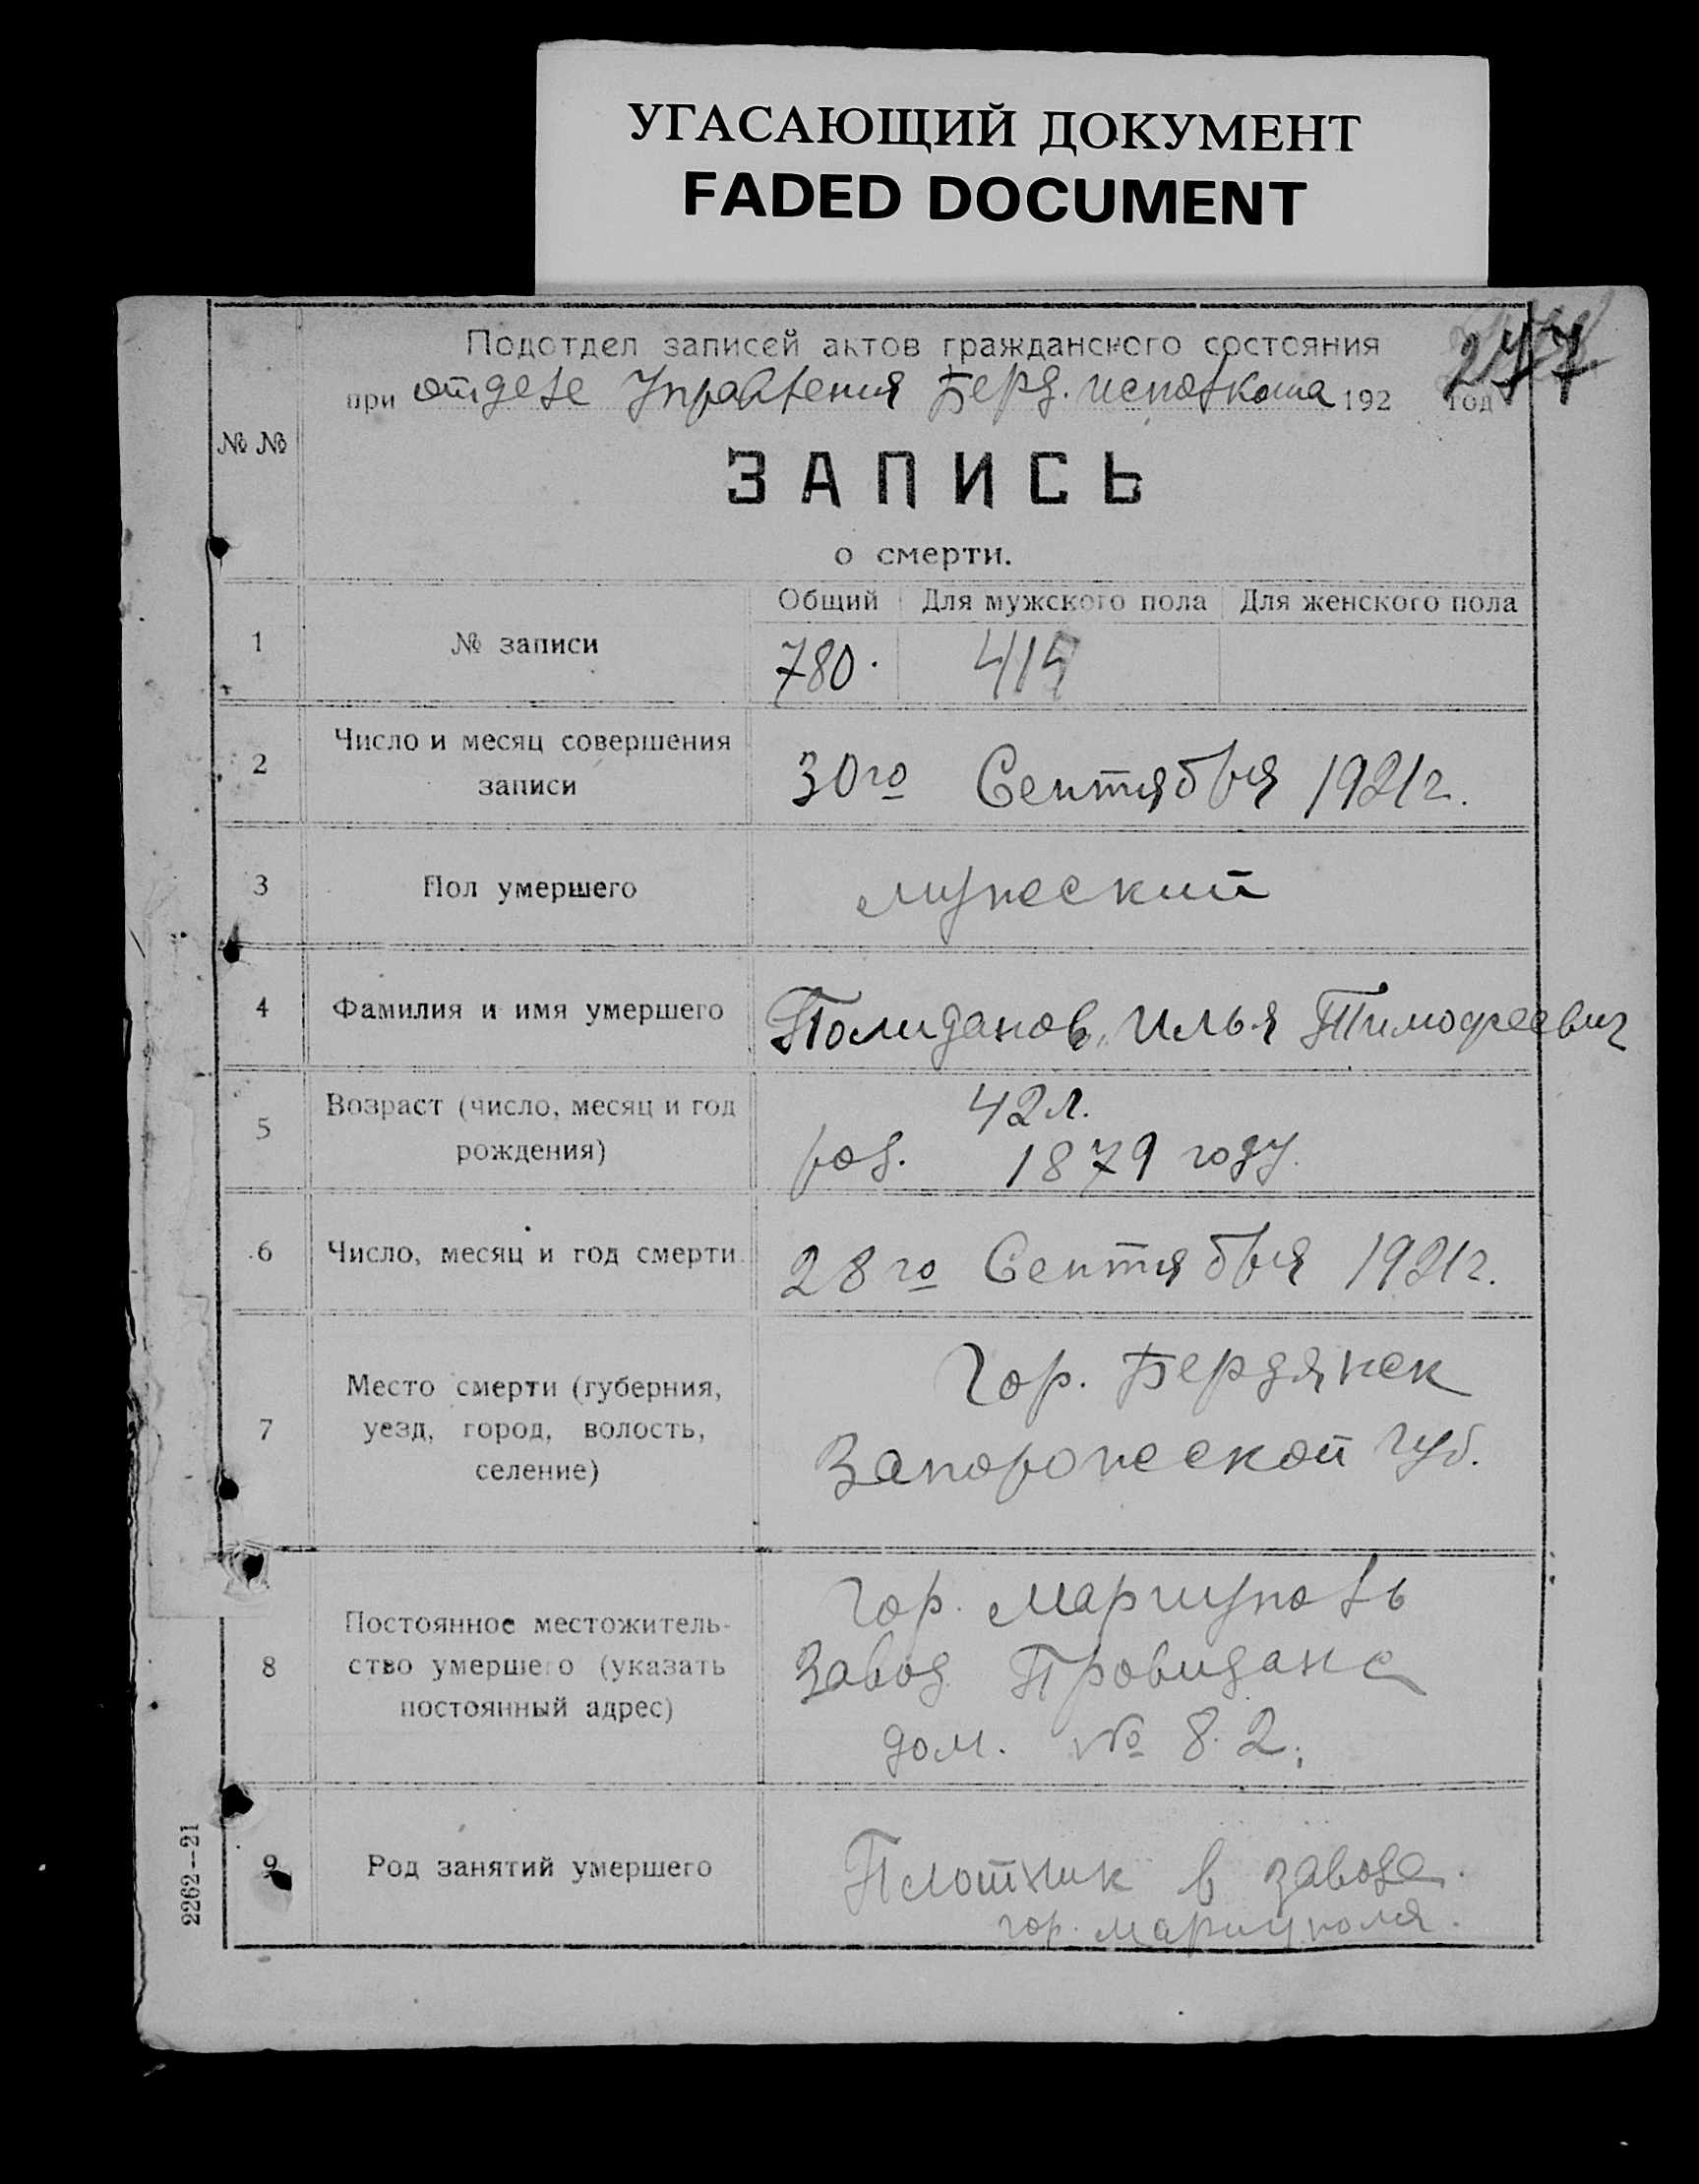 УГАСАЮЩИЙ ДОКУМЕНТ
FADED DOCUMENT
247
Подотдел записей актов гражданского состояния
при отделе Управления Берд. исполкома 192 год
№ №
ЗАПИСЬ
о смерти.
Общий Для мужского пола Для женского пола
1 № записи 780. 415
2 Число и месяц совершения
записи
30го Сентября 1921г.
3 Пол умершего мужеский
4 Фамилия и имя умершего Полиданов, Илья Тимофеевич
5 Возраст (число, месяц и год
рождения)
42 л.
род. 1879 году.
6 Число, месяц и год смерти. 28го Сентября 1921г.
7 Место смерти (губерния,
уезд, город, волость,
селение)
Гор. Бердянск
Запорожеской губ.
8 Постоянное местожитель-
ство умершего (указать
постоянный адрес)
Гор. Мариуполь
Завод Провиданс
дом. № 82.
9 Род занятий умершего Плотник в заводе.
гор. Мариуполя.
2262—21